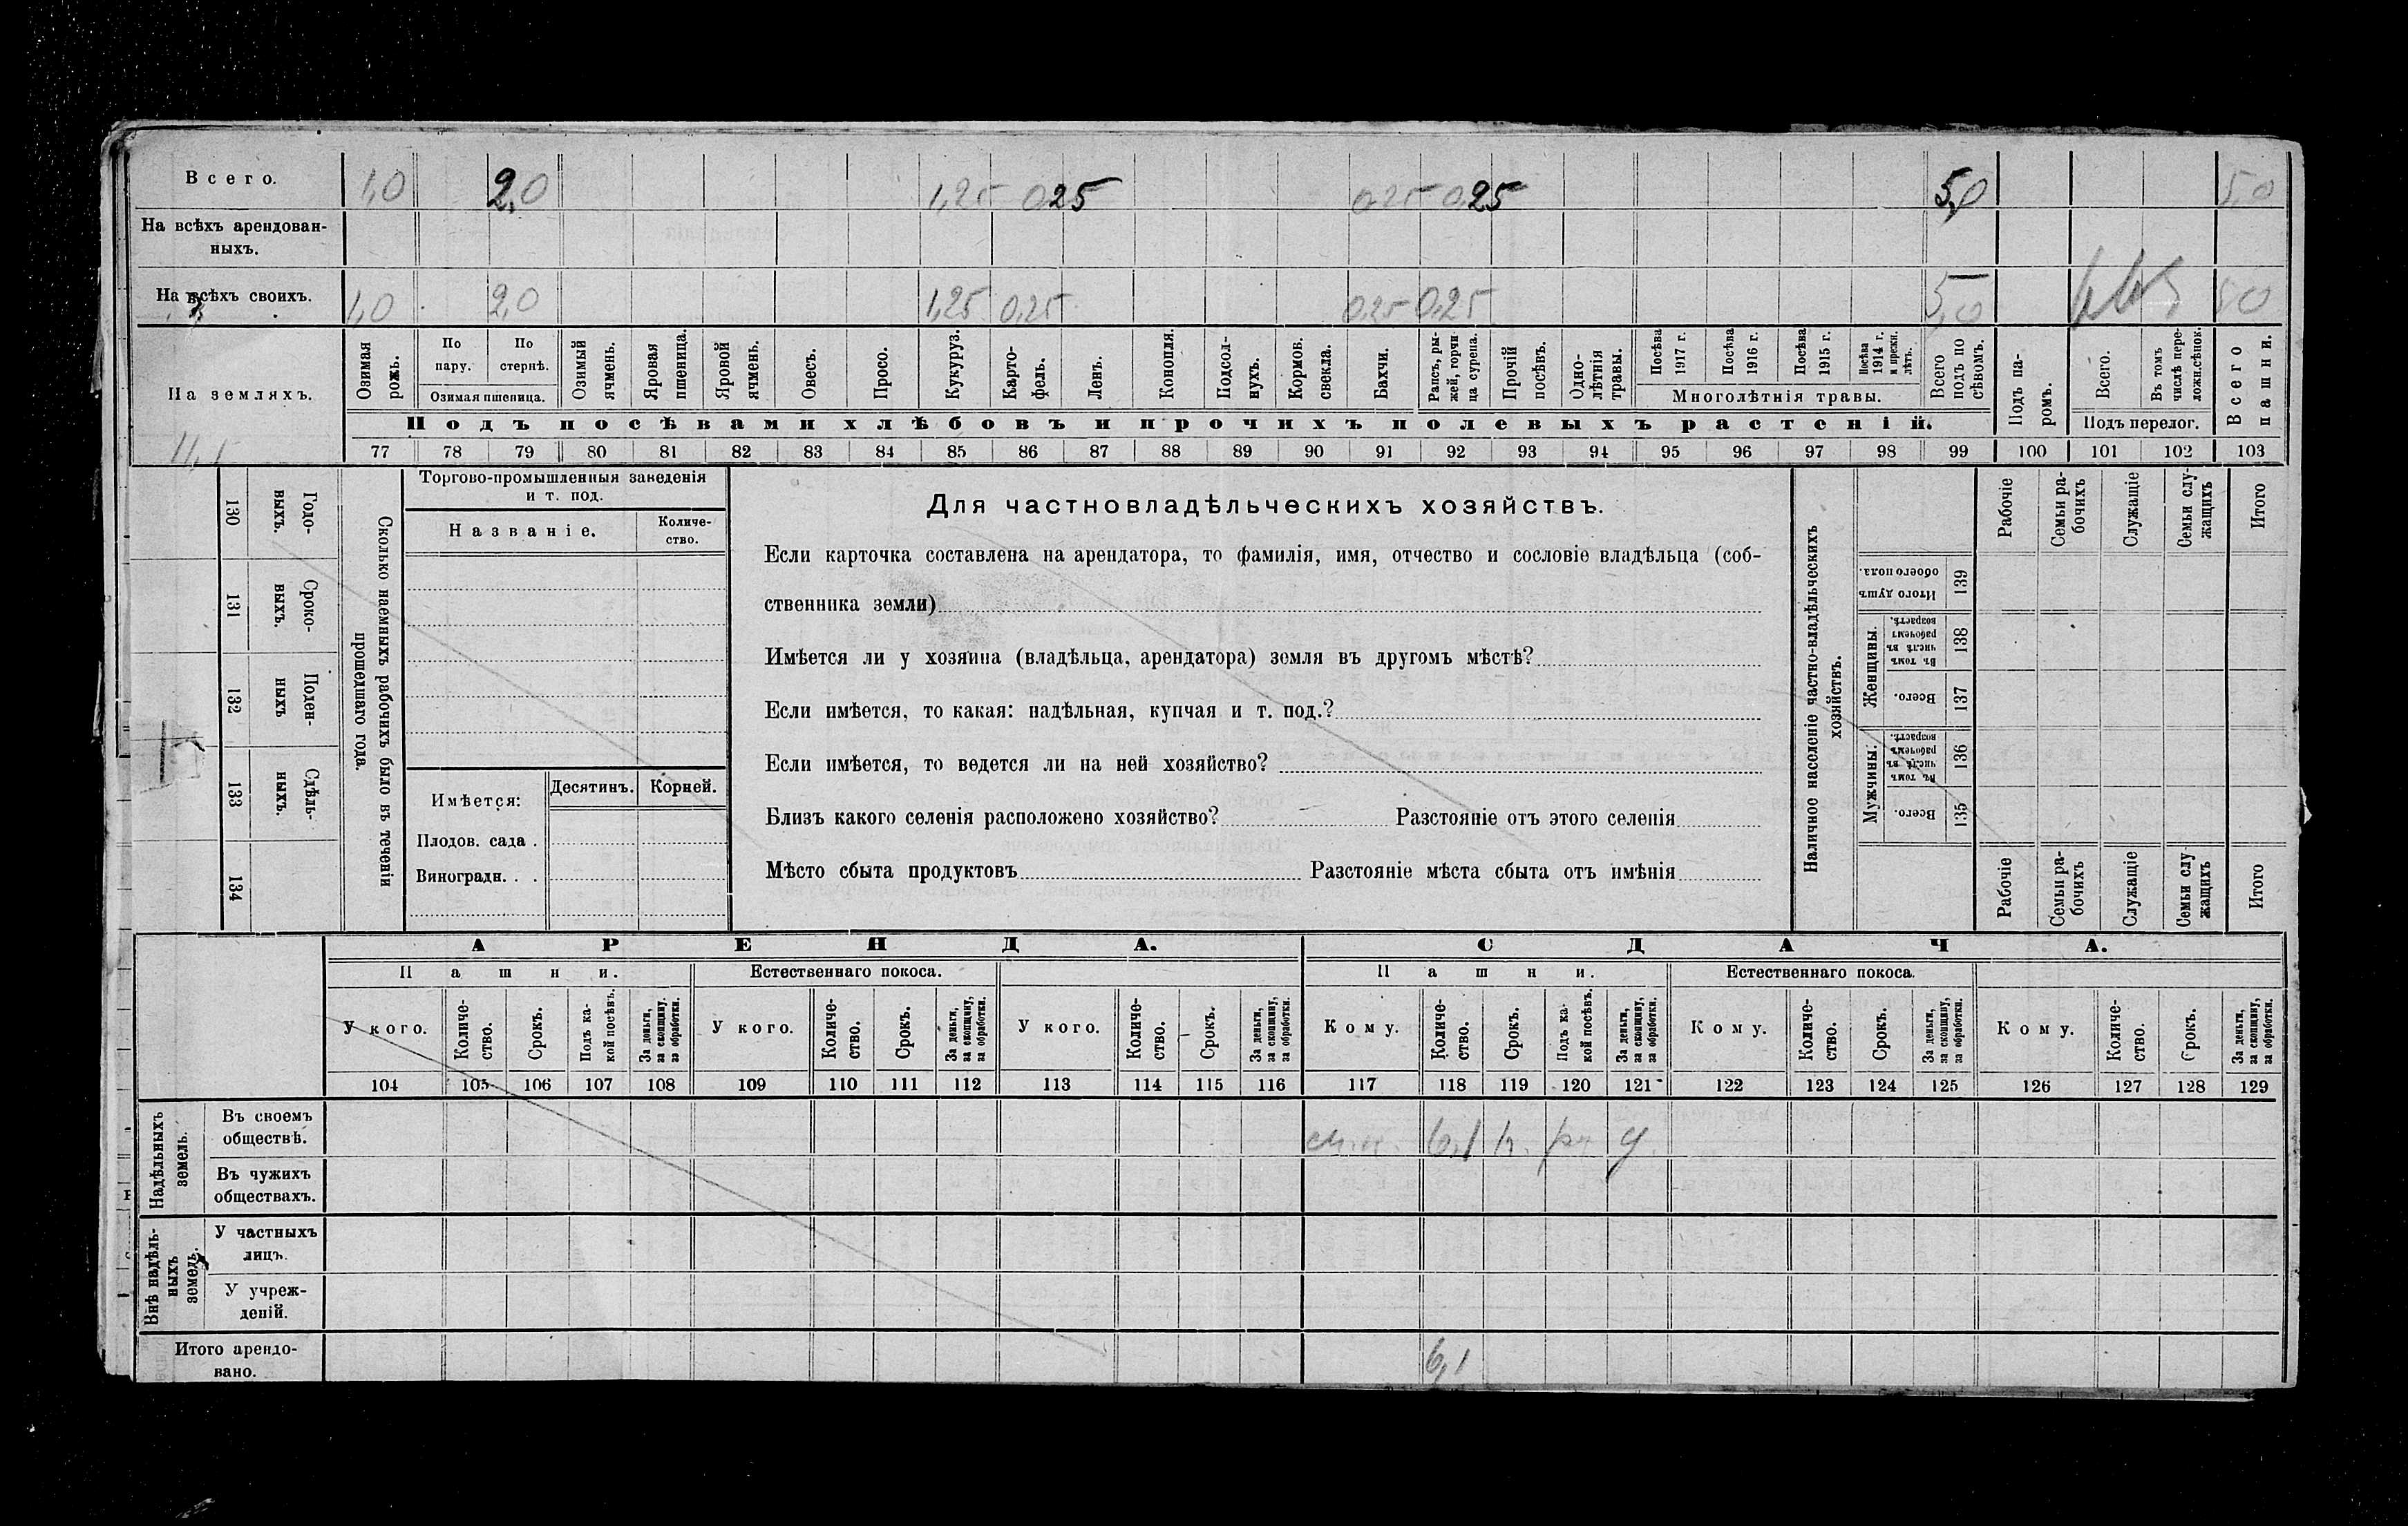 Всего. 1,0 2,0 1,25 0,25 0,25 0,25 5,0 5,0
На всѣхъ арендован-
ныхъ.
На всѣхъ своихъ. 1,0 2,0 1,25 0,25 0,25 0,25 5,0 5,0
На земляхъ.
11,1
Озимая рожь.
По пару.
По стернѣ.
Озимая пшеница.
Озимый ячмень.
Яровая пшеница.
Яровой ячмень.
Овесъ.
Просо.
Кукуруз.
Карто-
фель.
Ленъ.
Конопля.
Подсол-
нухъ.
Кормов. свекла.
Бахчи.
Рапсъ, ры-
жей, горчи
ца сурепа.
Прочій посѣвъ.
Одно-
лѣтнія травы.
Посѣва 1917 г.
Посѣва 1916 г.
Посѣва 1915 г.
Посѣва 1914 г. и прежн. лѣтъ.
Многолѣтнія травы.
Всего подъ по
сѣвомъ.
Подъ па-
ромъ.
Всего.
Въ томъ числѣ пере-
ложн.сѣнок.
Подъ перелог.
Всего пашни.
Подъ посѣвами хлѣбовъ и прочихъ полевыхъ растеній.
77 78 79 80 81 82 83 84 85 86 87 88 89 90 91 92 93 94 95 96 97 98 99 100 101 102 103
130 Годо-
выхъ.
131 Сроко-
выхъ.
132 Поден-
ныхъ
133 Сдѣль-
ныхъ.
134
Сколько наемныхъ рабочихъ было въ теченіи
прошедшаго года.
Торгово-промышленныя заведенія
и т. под.
Названіе.
Количе-
ство.
Имѣется:
Десятинъ. Корней.
Плодов. сада .
Виноградн. . .
Для частновладѣльческихъ хозяйствъ.
Если карточка составлена на арендатора, то фамилія, имя, отчество и сословіе владѣльца (соб-
ственника земли)
Имѣется ли у хозяина (владѣльца, арендатора) земля въ другомъ мѣстѣ?
Если имѣется, то какая: надѣльная, купчая и т. под.?
Если имѣется, то ведется ли на ней хозяйство?
Близъ какого селенія расположено хозяйство? Разстояніе отъ этого селенія
Мѣсто сбыта продуктовъ Разстояніе мѣста сбыта отъ имѣнія
Наличное населеніе частно-владѣльческихъ
хозяйствъ.
Рабочіе
Семьи ра-
бочихъ
Служащіе
Семьи слу-
жащихъ
Итого
Итого душъ обоего пола. 139
Женщины.
Въ томъ числѣ въ рабочемъ возрастѣ. 138
Всего. 137
Мужчины.
Въ томъ числѣ въ рабочемъ возрастѣ. 136
Всего. 135
Рабочіе
Семьи ра-
бочихъ
Служащіе
Семьи слу
жащихъ
Итого
АРЕНДА.
СДАЧА.
Пашни.
Естественнаго покоса.
Пашни.
Естественнаго покоса.
У кого.
Количе-
ство.
Срокъ.
Подъ ка-
кой посѣвъ.
За деньги, за скопщину, за обработки.
У кого.
Количе-
ство.
Срокъ.
За деньги, за скопщину, за обработки.
У кого.
Количе-
ство.
Срокъ.
За деньги, за скопщину, за обработки.
Кому.
Количе-
ство.
Срокъ.
Подъ ка-
кой посѣвъ.
За деньги, за скопщину, за обработки.
Кому.
Количе-
ство.
Срокъ.
За деньги, за скопщину, за обработки.
Кому.
Количе-
ство.
Срокъ.
За деньги, за скопщину, за обработки.
104 105 106 107 108 109 110 111 112 113 114 115 116 117 118 119 120 121 122 123 124 125 126 127 128 129
Надѣльныхъ земель.
Въ своемъ
обществѣ. 6,1
Въ чужихъ
обществахъ.
Внѣ надѣль-
ныхъ земель.
У частныхъ
лицъ.
У учреж-
деній.
Итого арендо-
вано. 6,1